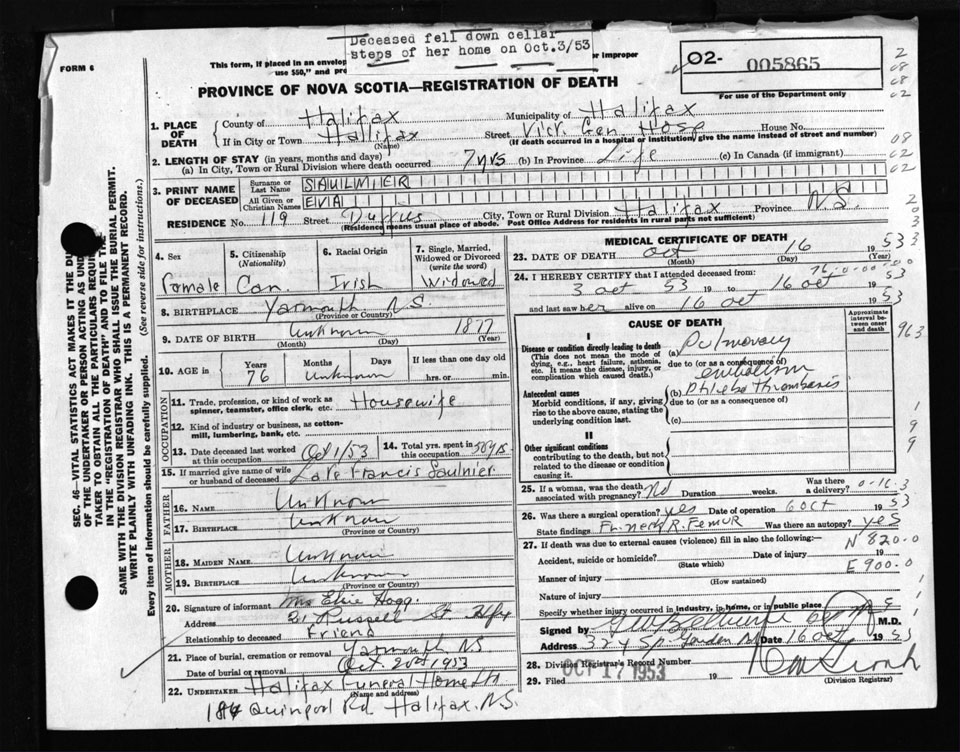 Deceased fell down cellar
steps of her home on Oct.3/53
FORM 6
This form, if placed in an envelop
use $50," and pre
improper
02- 005865
For use of the Department only
PROVINCE OF NOVA SCOTIA—REGISTRATION OF DEATH
1. PLACE OF DEATH
County of Halifax Municipality of Halifax
If in City or Town Halifax Street Vict. Gen. Hosp House No.
(Name) (If death occurred in a hospital or institution, give the name instead of street and number)
2. LENGTH OF STAY (in years, months and days)
(a) In City, Town or Rural Division where death occurred 7yrs (b) In Province Life (c) In Canada (if immigrant)
3. PRINT NAME OF DECEASED
Surname or Last Name SAULNIER
All Given or Christian Names EVA
RESIDENCE No. 119 Street Duffus City, Town or Rural Division Halifax Province N.S.
(Residence means usual place of abode. Post Office Address for residents in rural parts not sufficient)
4. Sex
Female
5. Citizenship
(Nationality)
Can.
6. Racial Origin
Irish
7. Single, Married, Widowed or Divorced
(write the word)
Widowed
8. BIRTHPLACE Yarmouth N.S.
(Province or Country)
9. DATE OF BIRTH Unknown 1877
(Month) (Day) (Year)
10. AGE in
Years Months Days If less than one day old
76 Unknown hrs. or min.
OCCUPATION
11. Trade, profession, or kind of work as
spinner, teamster, office clerk, etc. Housewife
12. Kind of industry or business, as cotton-
mill, lumbering, bank, etc.
13. Date deceased last worked
at this occupation Oct 1/53
14. Total yrs. spent in
this occupation 50yrs.
15. If married give name of wife
or husband of deceased Late Francis Saulnier
FATHER
16. Name Unknown
17. Birthplace Unknown
(Province or Country)
MOTHER
18. Maiden Name Unknown
19. Birthplace Unknown
(Province or Country)
20. Signature of informant Mrs Elsie Hogg
Address 21 Russell St Hlfx
Relationship to deceased Friend
21. Place of burial, cremation or removal Yarmouth NS
Date of burial or removal Oct. 20th 1953
22. UNDERTAKER Halifax Funeral Home Ltd
(Name and address)
186 Quinpool Rd Halifax. N.S.
MEDICAL CERTIFICATE OF DEATH
23. DATE OF DEATH Oct 16 1953
(Month) (Day) (Year)
24. I HEREBY CERTIFY that I attended deceased from:
3 Oct 53 19 to 16 Oct 1953
and last saw her alive on 16 Oct 1953
CAUSE OF DEATH
Approximate interval between onset and death
Disease or condition directly leading to death
(This does not mean the mode of dying, e.g., heart failure, asthenia, etc. It means the disease, injury, or complication which caused death.)
(a) Pulmonary
due to (or as a consequence of)
embolism
Antecedent causes
Morbid conditions, if any, giving rise to the above cause, stating the underlying condition last.
(b) Phlebothrombosis
due to (or as a consequence of)
(c)
II
Other significant conditions
contributing to the death, but not related to the disease or condition causing it.
25. If a woman, was the death
associated with pregnancy? No Duration weeks. Was there a delivery?
26. Was there a surgical operation? yes Date of operation 6 Oct 1953
State findings Fr. neck R. Femur Was there an autopsy? yes
27. If death was due to external causes (violence) fill in also the following:— N 820.0
Accident, suicide or homicide? Date of injury 19
(State which) E 900.0
Manner of injury (How sustained)
Nature of injury
Specify whether injury occurred in industry, in home, or in public place
Signed by M.D.
Address 324 Sp. Garden Rd Date 16 Oct 1953
28. Division Registrar's Record Number
29. Filed OCT 17 1953 19
(Division Registrar)
SEC. 46—VITAL STATISTICS ACT MAKES IT THE DU
OF THE UNDERTAKER OR PERSON ACTING AS UND
TAKER TO OBTAIN ALL THE PARTICULARS REQUI
IN THE "REGISTRATION OF DEATH" AND TO FILE THE
SAME WITH THE DIVISION REGISTRAR WHO SHALL ISSUE THE BURIAL PERMIT.
WRITE PLAINLY WITH UNFADING INK. THIS IS A PERMANENT RECORD.
Every item of information should be carefully supplied. (See reverse side for instructions.)